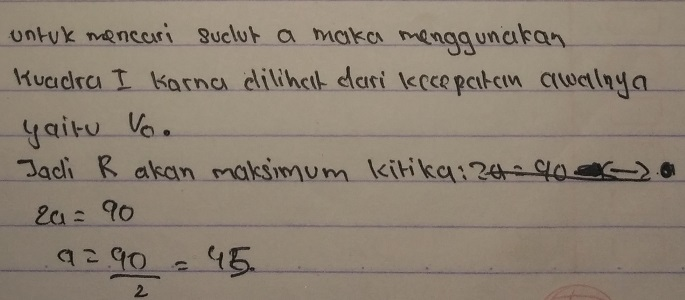 untuk mencari sudut a maka menggunakan
Kuadra I Karna dilihat dari kecepatan awalnya
yaitu Vo.
Jadi R akan maksimum kitika: 2a = 90
2a = 90
a = 90/2 = 45.